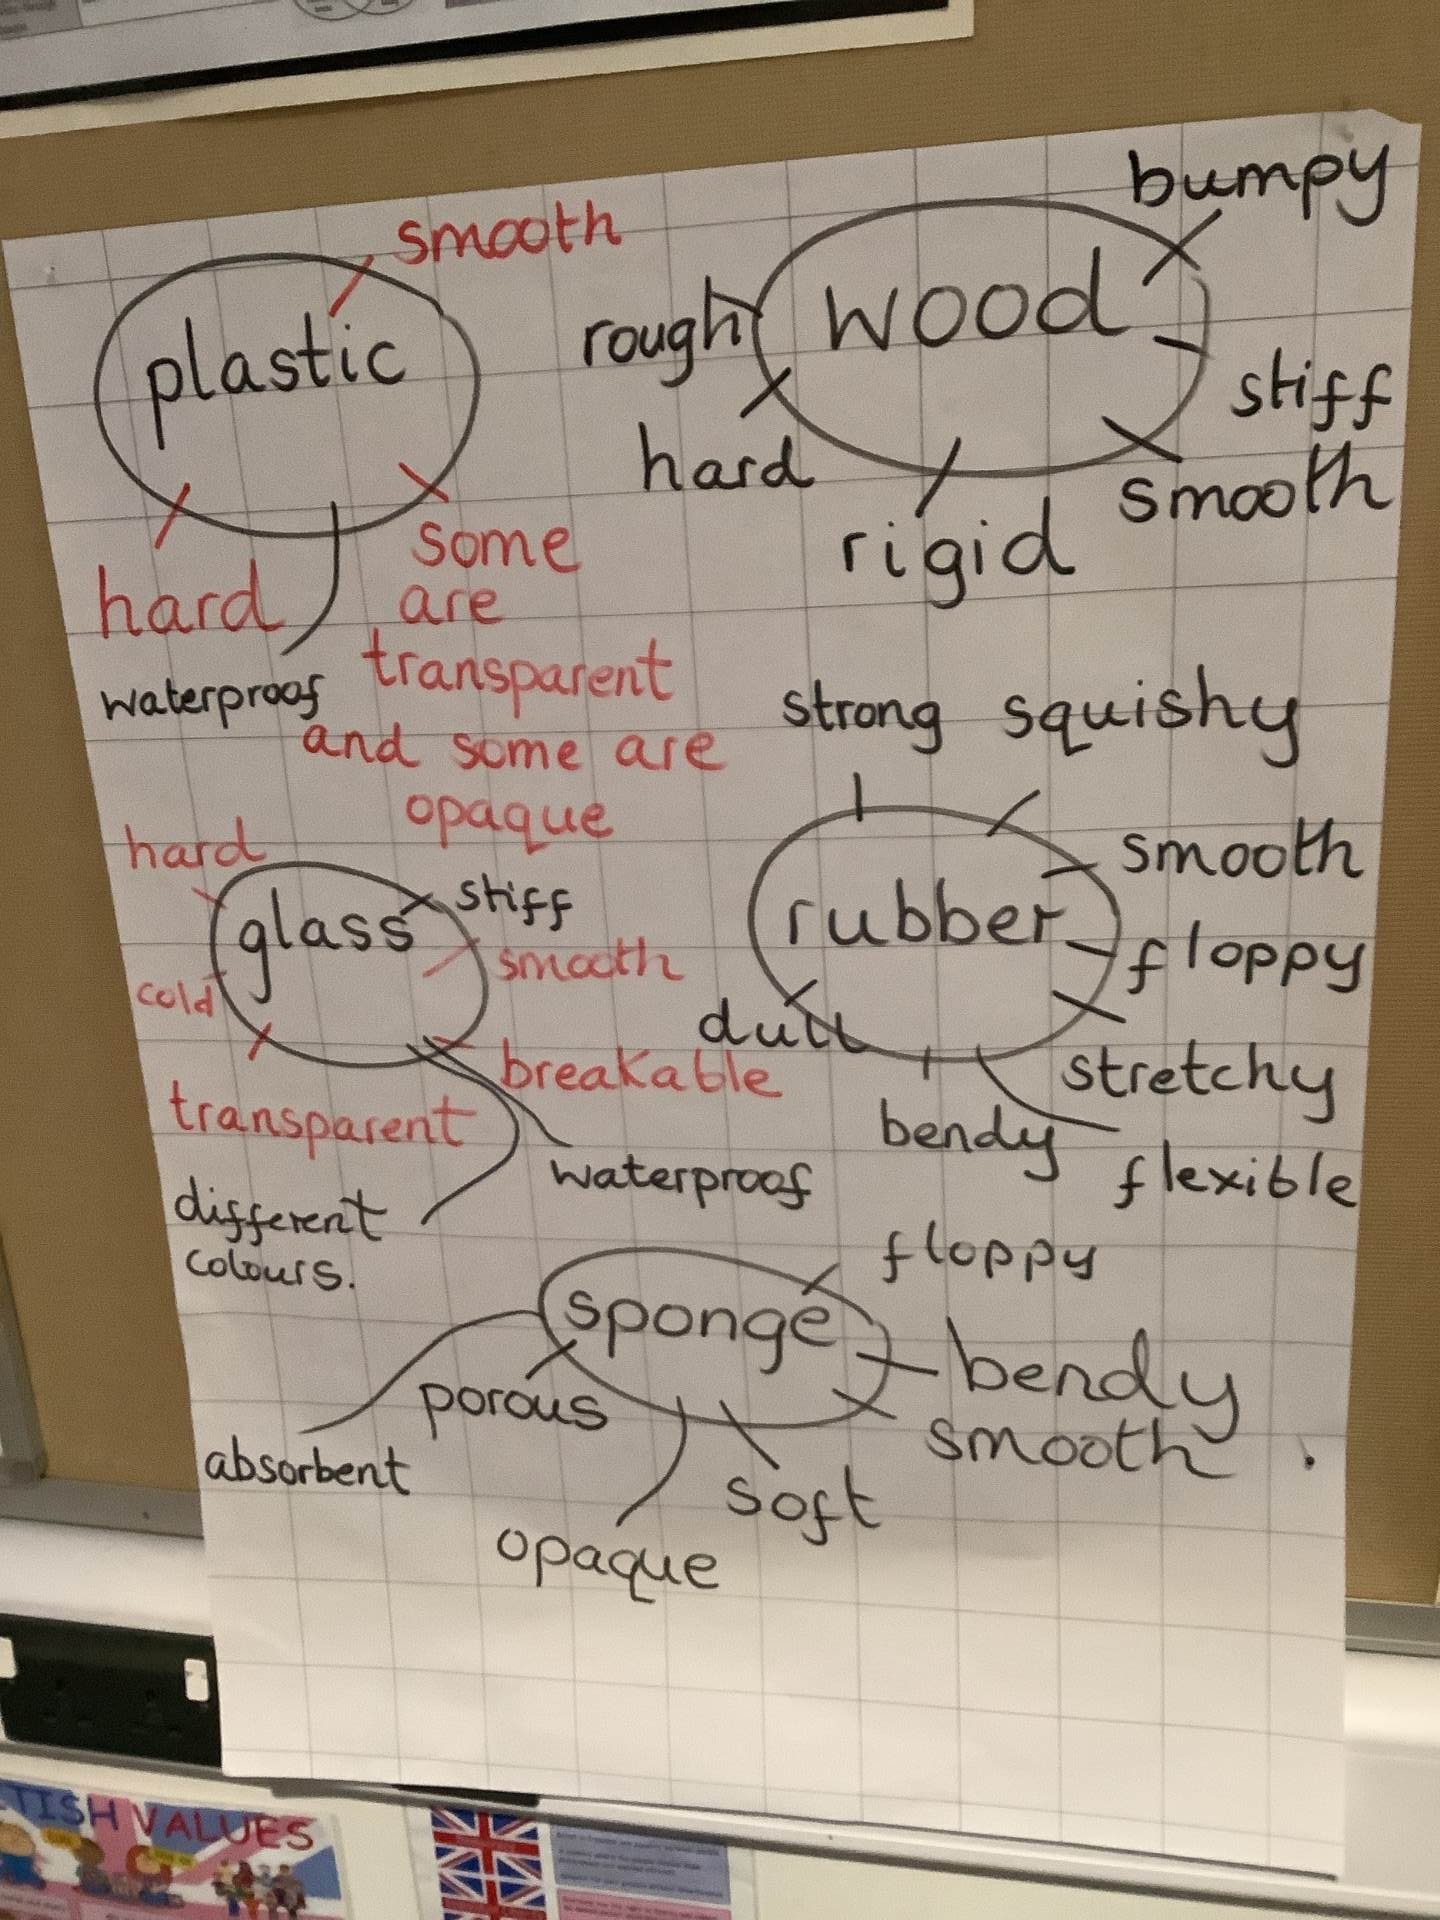 smooth
plastic
hard
waterproof
some
are
transparent
and some are
opaque
bumpy
wood
rough
stiff
hard
smooth
rigid
hard
glass
stiff
smooth
cold
breakable
transparent
waterproof
different
colours.
strong squishy
rubber
smooth
floppy
dull
stretchy
bendy
flexible
sponge
floppy
bendy
porous
smooth
absorbent
soft
opaque
TISH VALUES